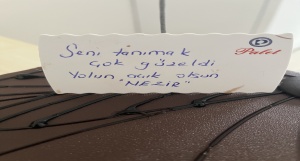 Seni tanımak
çok güzeldi
Yolun açık olsun
"NEZİR"
Pelit